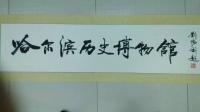 哈尔滨历史博物館